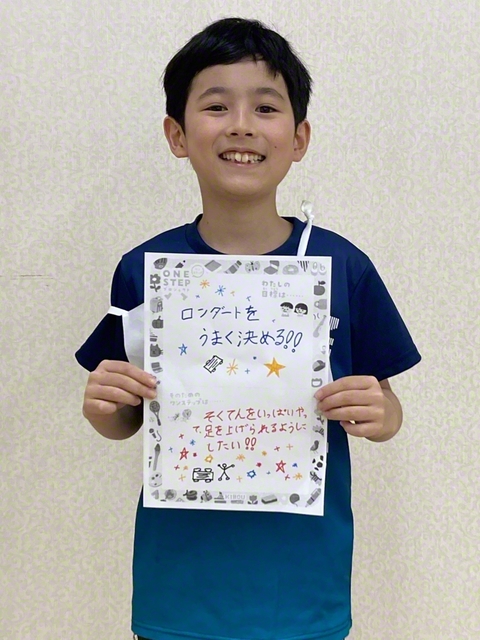 ONE
STEP
わたしの
目標は
ロンダートを
うまく決める!!
そのための
ワンステップは
そくてんをいっぱいやっ
て、足を上げられるように
したい!!